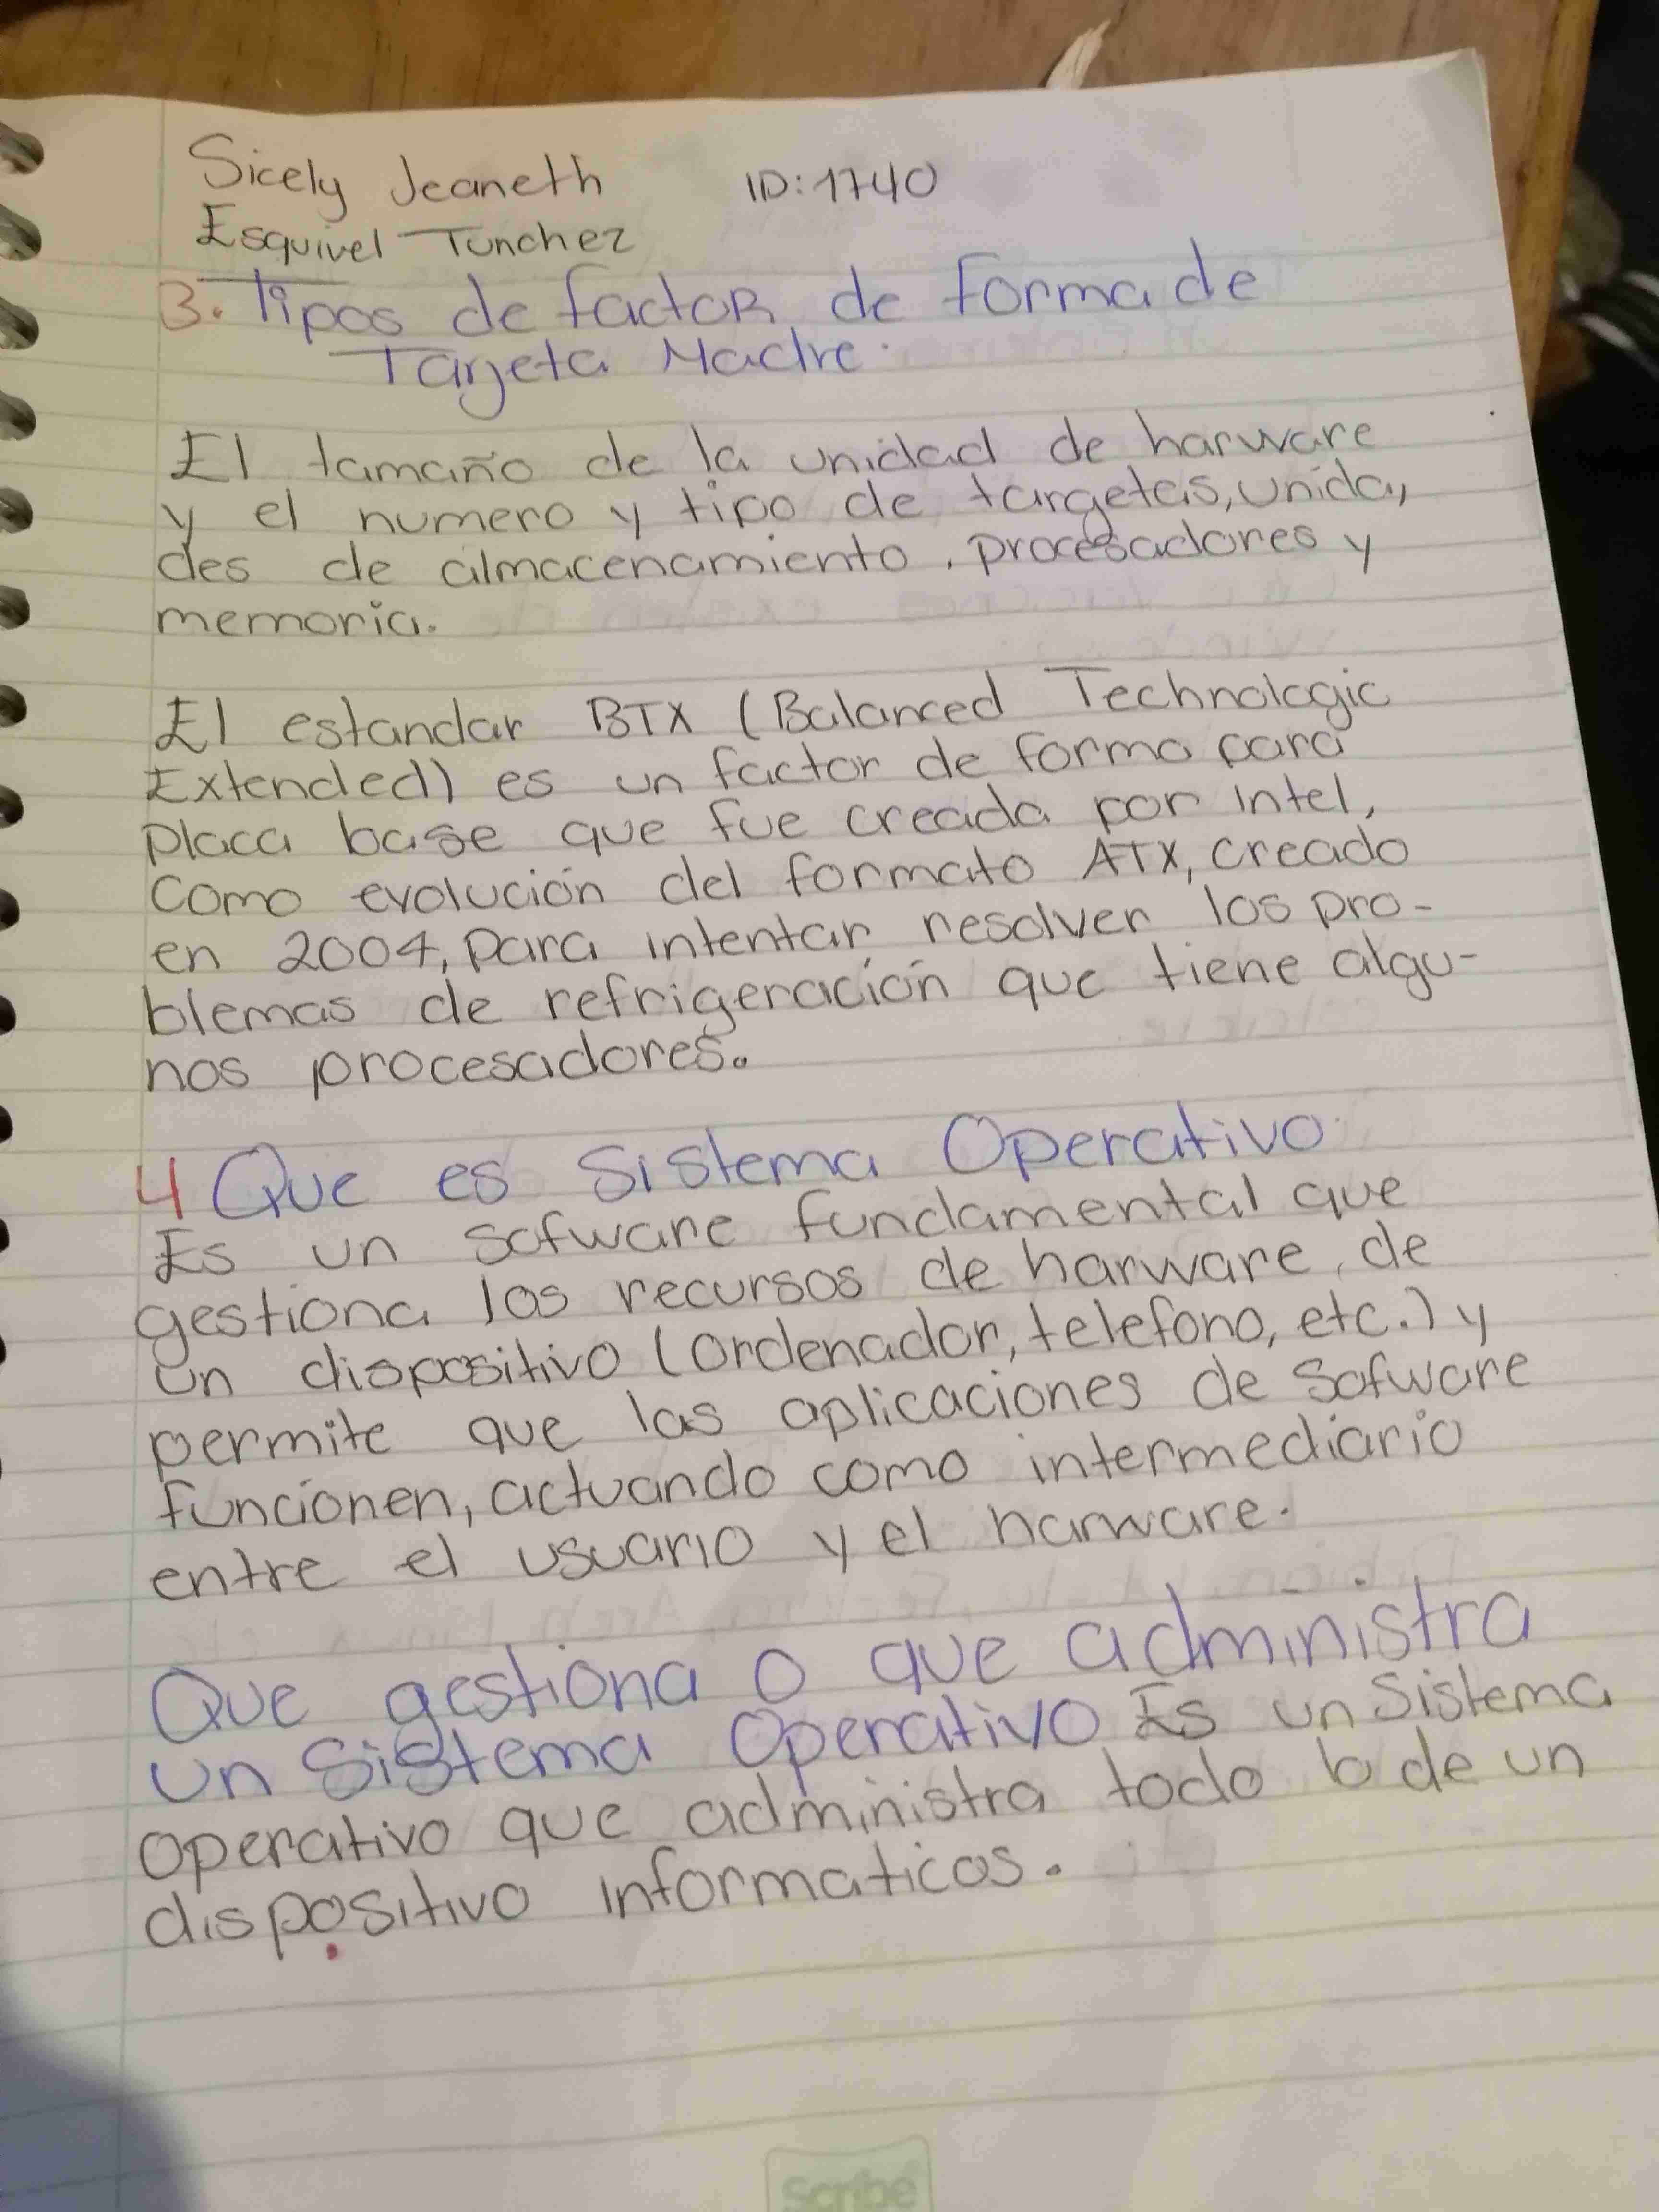 Sicely Jeaneth ID: 1740
Esquivel Tunchez
3. Tipos de factoR de forma de
Tarjeta Madre.
El tamaño de la unidad de harware
y el numero y tipo de targetas, unida,
des de almacenamiento, procesadores y
memoria.
El estandar BTX (Balanced Technologic
Extended) es un factor de forma para
placa base que fue creada por intel,
como evolución del formato ATX, creado
en 2004, para intentar resolver los pro-
blemas de refrigeración que tiene algu-
nos procesadores.
4 Que es Sistema Operativo.
Es un sofware fundamental que
gestiona los recursos de harware, de
un dispositivo (ordenador, telefono, etc.) y
permite que las aplicaciones de Sofware
funcionen, actuando como intermediario
entre el usuario y el harware.
Que gestiona o que administra
un sistema Operativo Es un sistema
operativo que administra todo lo de un
dispositivo informaticos.
Scribe